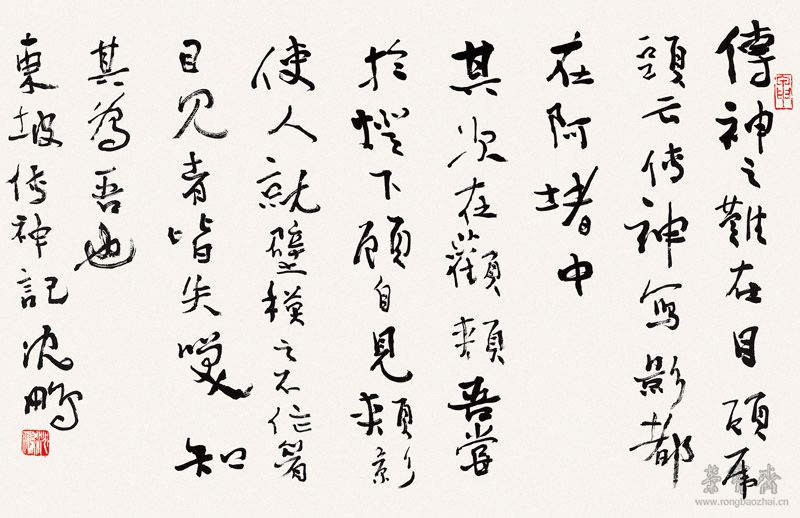 傳神之難在目頋虎
頭云傳神寫影都
在阿堵中
其次在顴頰吾嘗
於燈下顧自見頰影
使人就壁模之不作眉
目見者皆失嘆知
其為吾也
東坡傳神記 沈鵬
榮寶齋
www.rongbaozhai.cn